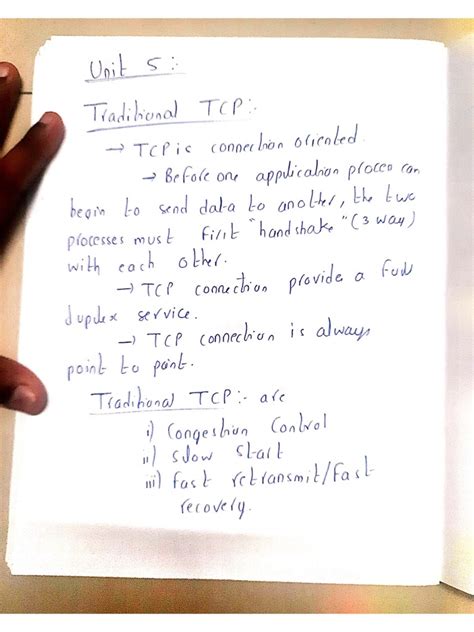 Unit 5 :-
Traditional TCP :-
→ TCP is connection oriented.
→ Before one application process can
begin to send data to another, the two
processes must first "handshake" (3 way)
with each other.
→ TCP connection provide a full
duplex service.
→ TCP connection is always
point to point.
Traditional TCP :- are
i) Congestion Control
ii) Slow Start
iii) Fast retransmit/Fast
recovery.